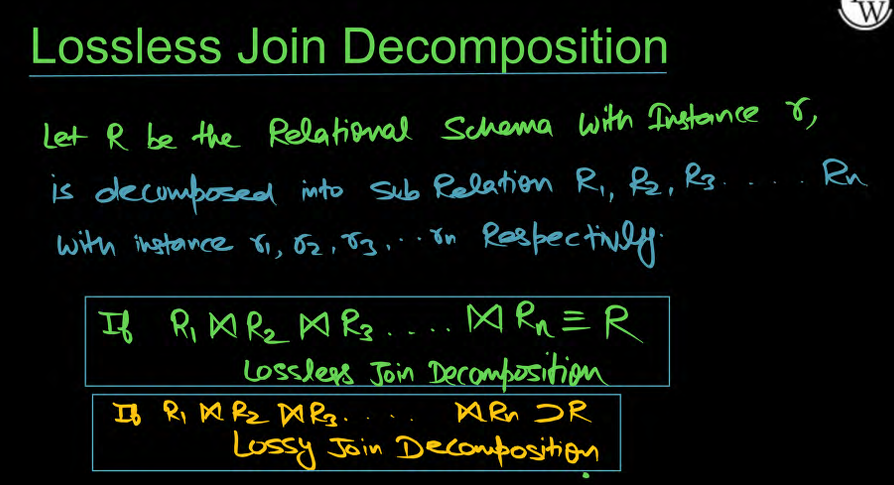 W
Lossless Join Decomposition
Let R be the Relational Schema with Instance r,
is decomposed into Sub Relation R1, R2, R3 ..... Rn
with instance r1, r2, r3, ... rn Respectively.
If R1 ⋈ R2 ⋈ R3 .... ⋈ Rn ≡ R
Lossless Join Decomposition
If R1 ⋈ R2 ⋈ R3 ..... ⋈ Rn ⊃ R
Lossy Join Decomposition